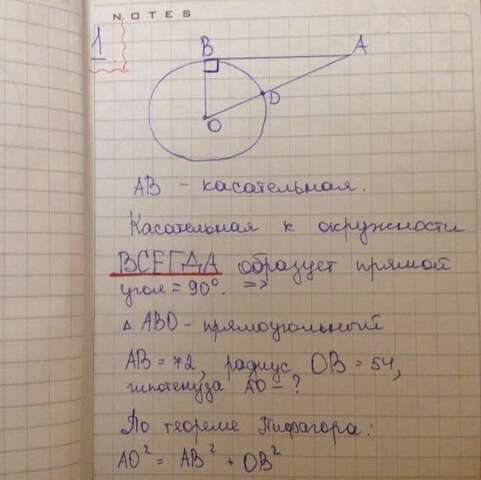 NOTES
1
B
A
D
O
AB - касательная.
Касательная к окружности
ВСЕГДА образует прямой
угол = 90°. =>
△ ABO - прямоугольный
AB = 72, радиус OB = 54,
гипотенуза AO - ?
По теореме Пифагора:
AO² = AB² + OB²